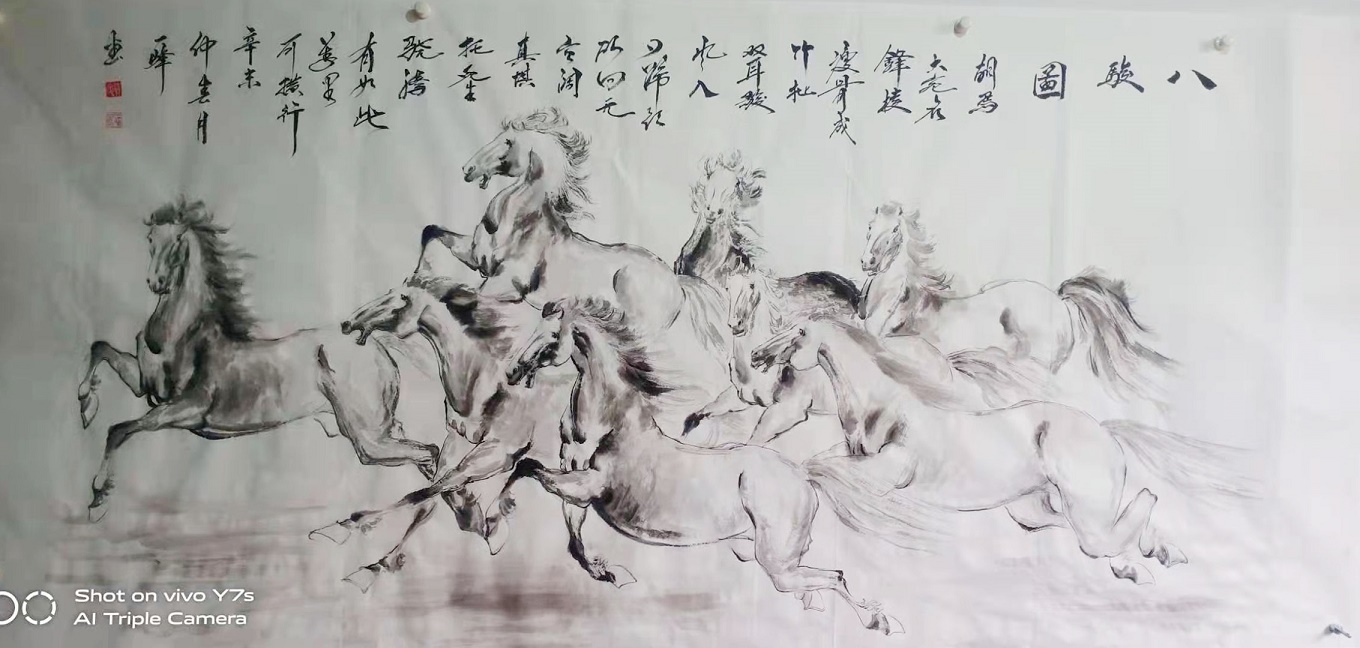 八駿圖
胡馬
大宛名
鋒棱
瘦骨成
竹批
双耳駿
风入
四蹄轻
所向无
空阔
真堪
托死生
骁腾
有如此
萬里
可横行
辛未
仲春月
畫
Shot on vivo Y7s
AI Triple Camera